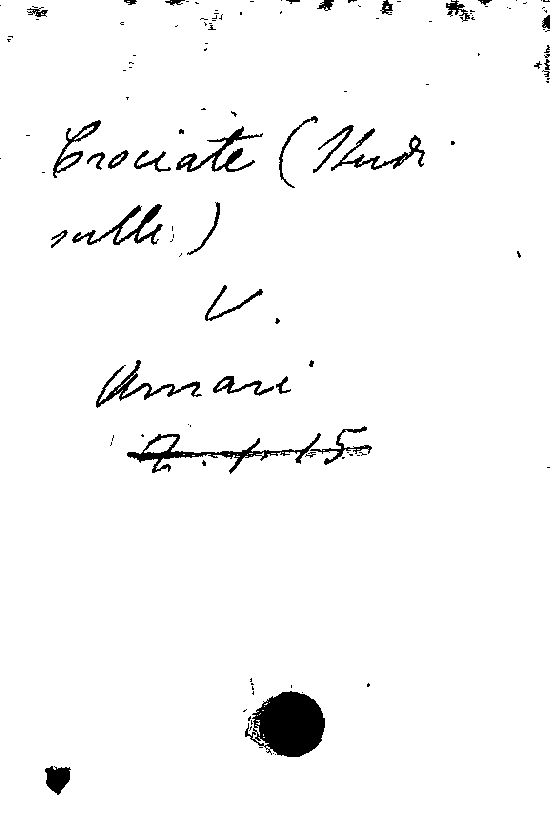 Crociate (Studi
sulle)
V.
Amari
Q. 1. 15